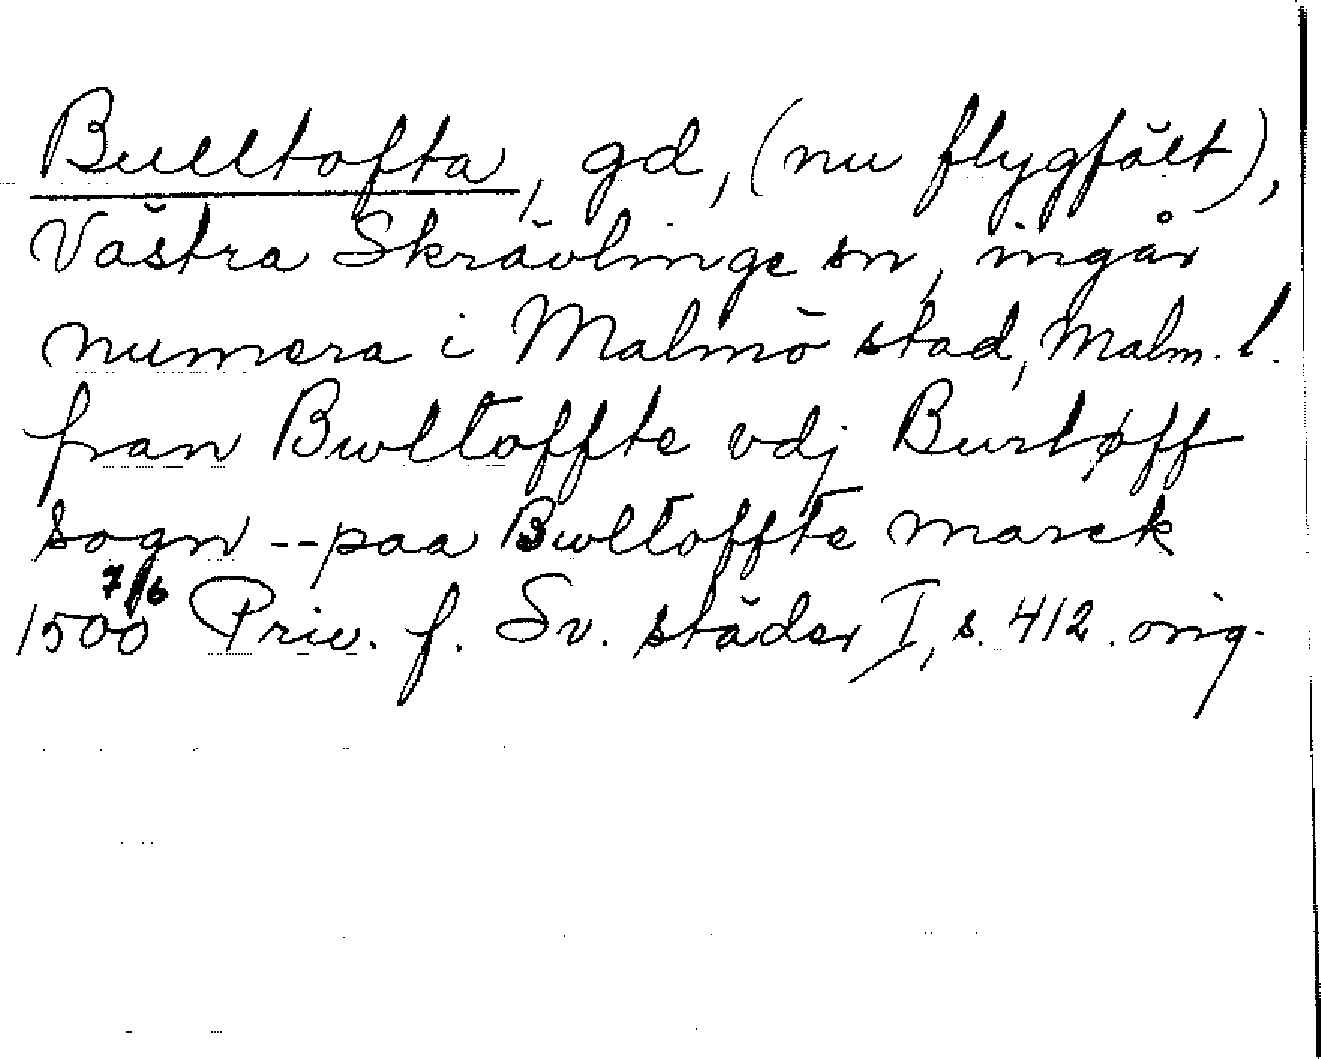 Bulltofta, gd, (nu flygfält),
Västra Skrävlinge sn, ingår
numera i Malmö stad, Malm. l.
fran Bwltoffte vdj Burløff
sogn -- paa Bwltoffte marck
1500 7/6 Priv. f. Sv. städer I, s. 412. orig.